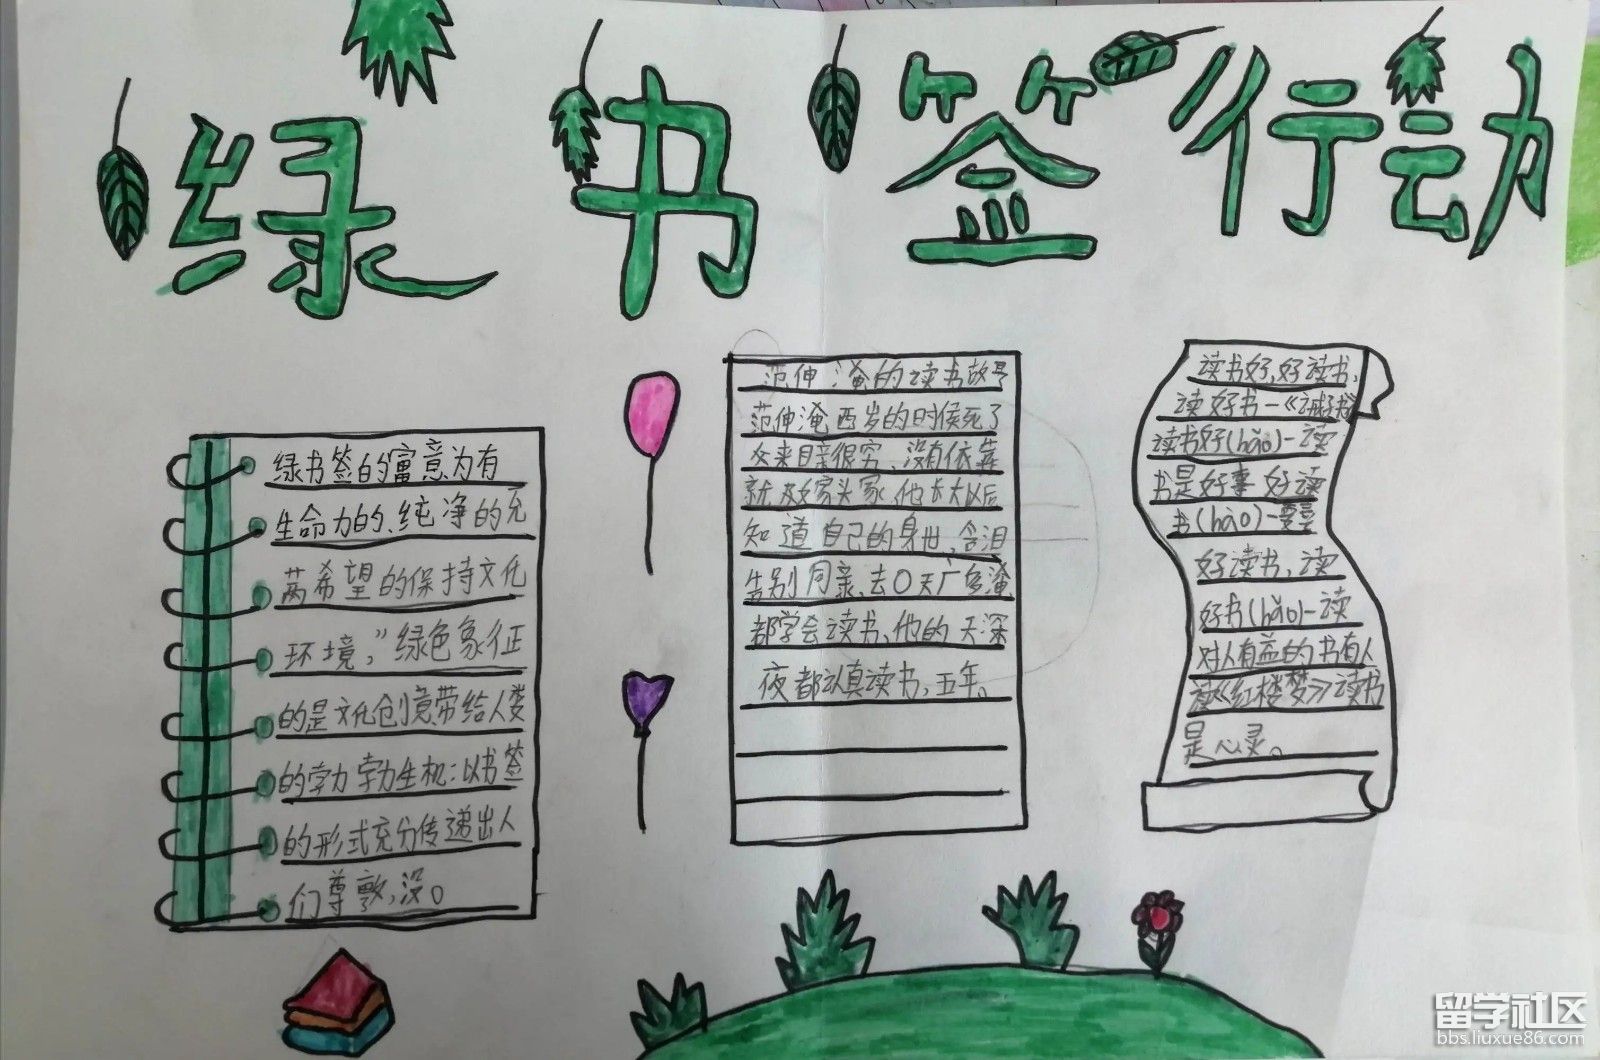 绿书签行动
绿书签的寓意为有
生命力的、纯净的充
满希望的保持文化
环境,”绿色象征
的是文化创意带给人类
的勃勃生机:以书签
的形式充分传递出人
们尊敬,没。
范仲淹的读书故
范仲淹西岁的时候死了
父亲很穷、没有依靠
就 他长大以后
知道自己的身世,含泪
告别 去
都学会读书、他的天深
夜都认真读书,五年、
读书好,好读书,
读好书-《
读书好(hǎo)-读
书是好事 好读
书(hào)-
好读书,读
好书(hǎo)-读
对人有益的书有人
《红楼梦》读书
是心灵。
留学社区
bbs.liuxue86.com